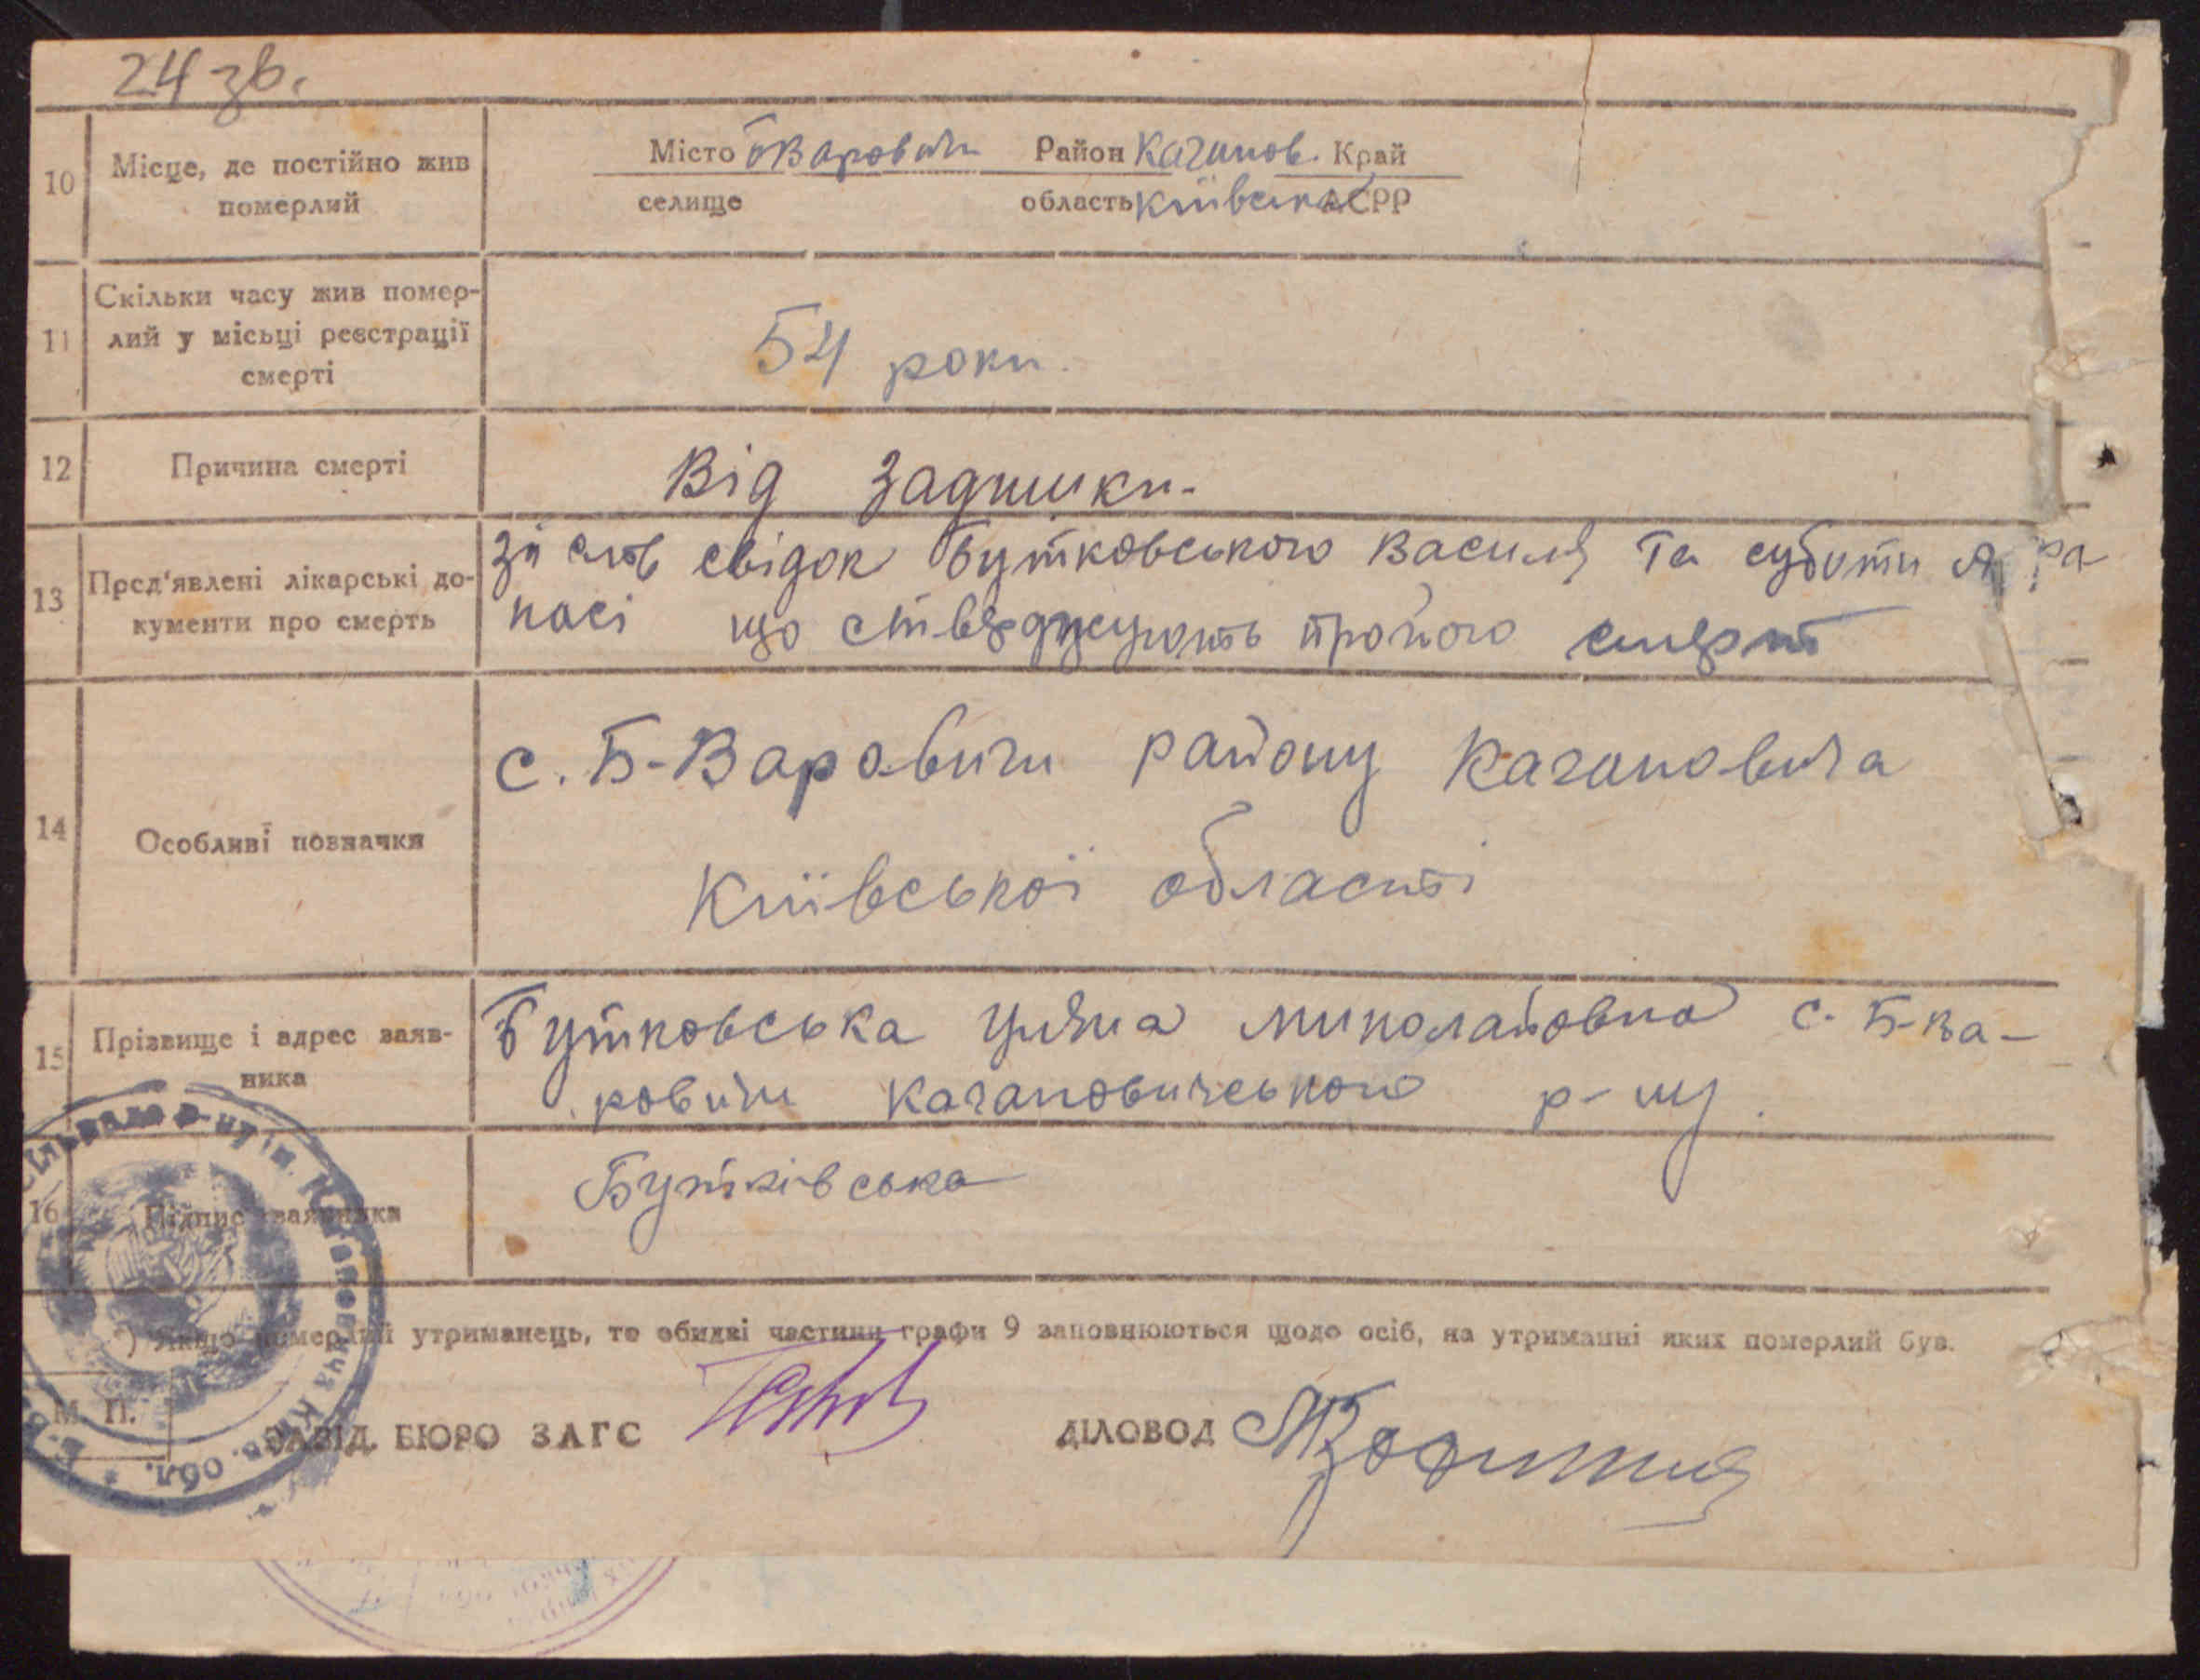 24 зв.
10 Місце, де постійно жив померлий
Місто Б Варовичі Район Каганов. Край
селище область Київська АСРР
11 Скільки часу жив помер-
лий у місьці реєстрації
смерті
54 роки.
12 Причина смерті
Від задишки.
13 Пред'явлені лікарські до-
кументи про смерть
зі слів свідок Бутковського Василя та суботи
що стверджують про його смерт
14 Особливі позначки
с. Б-Варовичи району Кагановича
Київської області
15 Прізвище і адрес заяв-
ника
Бутковська Миколайовна с. Б-Ва-
ровичи Кагановичського р-ну.
16 Підпис заявника
Бутківська
*) Якщо померлий утриманець, то обидві частини графи 9 заповнюються щодо осіб, на утриманні яких померлий був.
М. П.
ЗАВІД. БЮРО ЗАГС
ДІЛОВОД
сільрада р-ну ім. Кагановича Київ. обл.